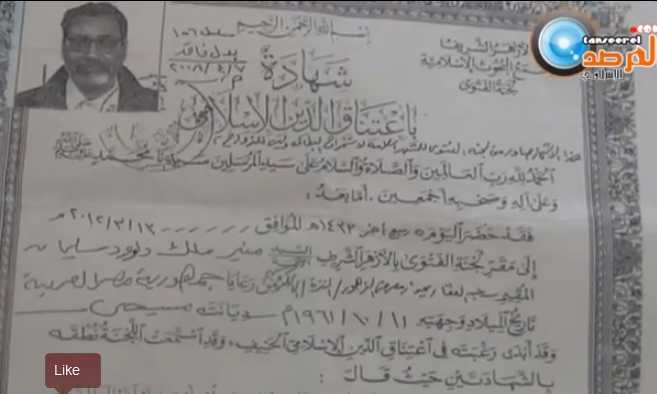 بسم الله الرحمن الرحيم
الأزهر الشريف
مجمع البحوث الإسلامية
لجنة الفتوى
tanseerel
.com
المرصد
الإسلامي
بدل فاقد
٢٠٠٨/٤/٧ م
شهادة
باعتناق الدين الإسلامي
الحمد لله رب العالمين والصلاة والسلام على سيد المرسلين سيدنا محمد
وعلى آله وصحبه أجمعين . أما بعد :
فقد حضر اليوم ربيع آخر ١٤٣٣هـ الموافق ٢٠١٢/٣/١٣ م
إلى مقر لجنة الفتوى بالأزهر الشريف السيد منير ملك داوود سليمان
رعايا جمهورية مصر العربية
تاريخ الميلاد وجهته ١٩٦١/١٠/١١م ديانته مسيحي
وقد أبدى رغبته في اعتناق الدين الإسلامي الحنيف ، وقد استمعت اللجنة نطقه
بالشهادتين حيث قال :
Like